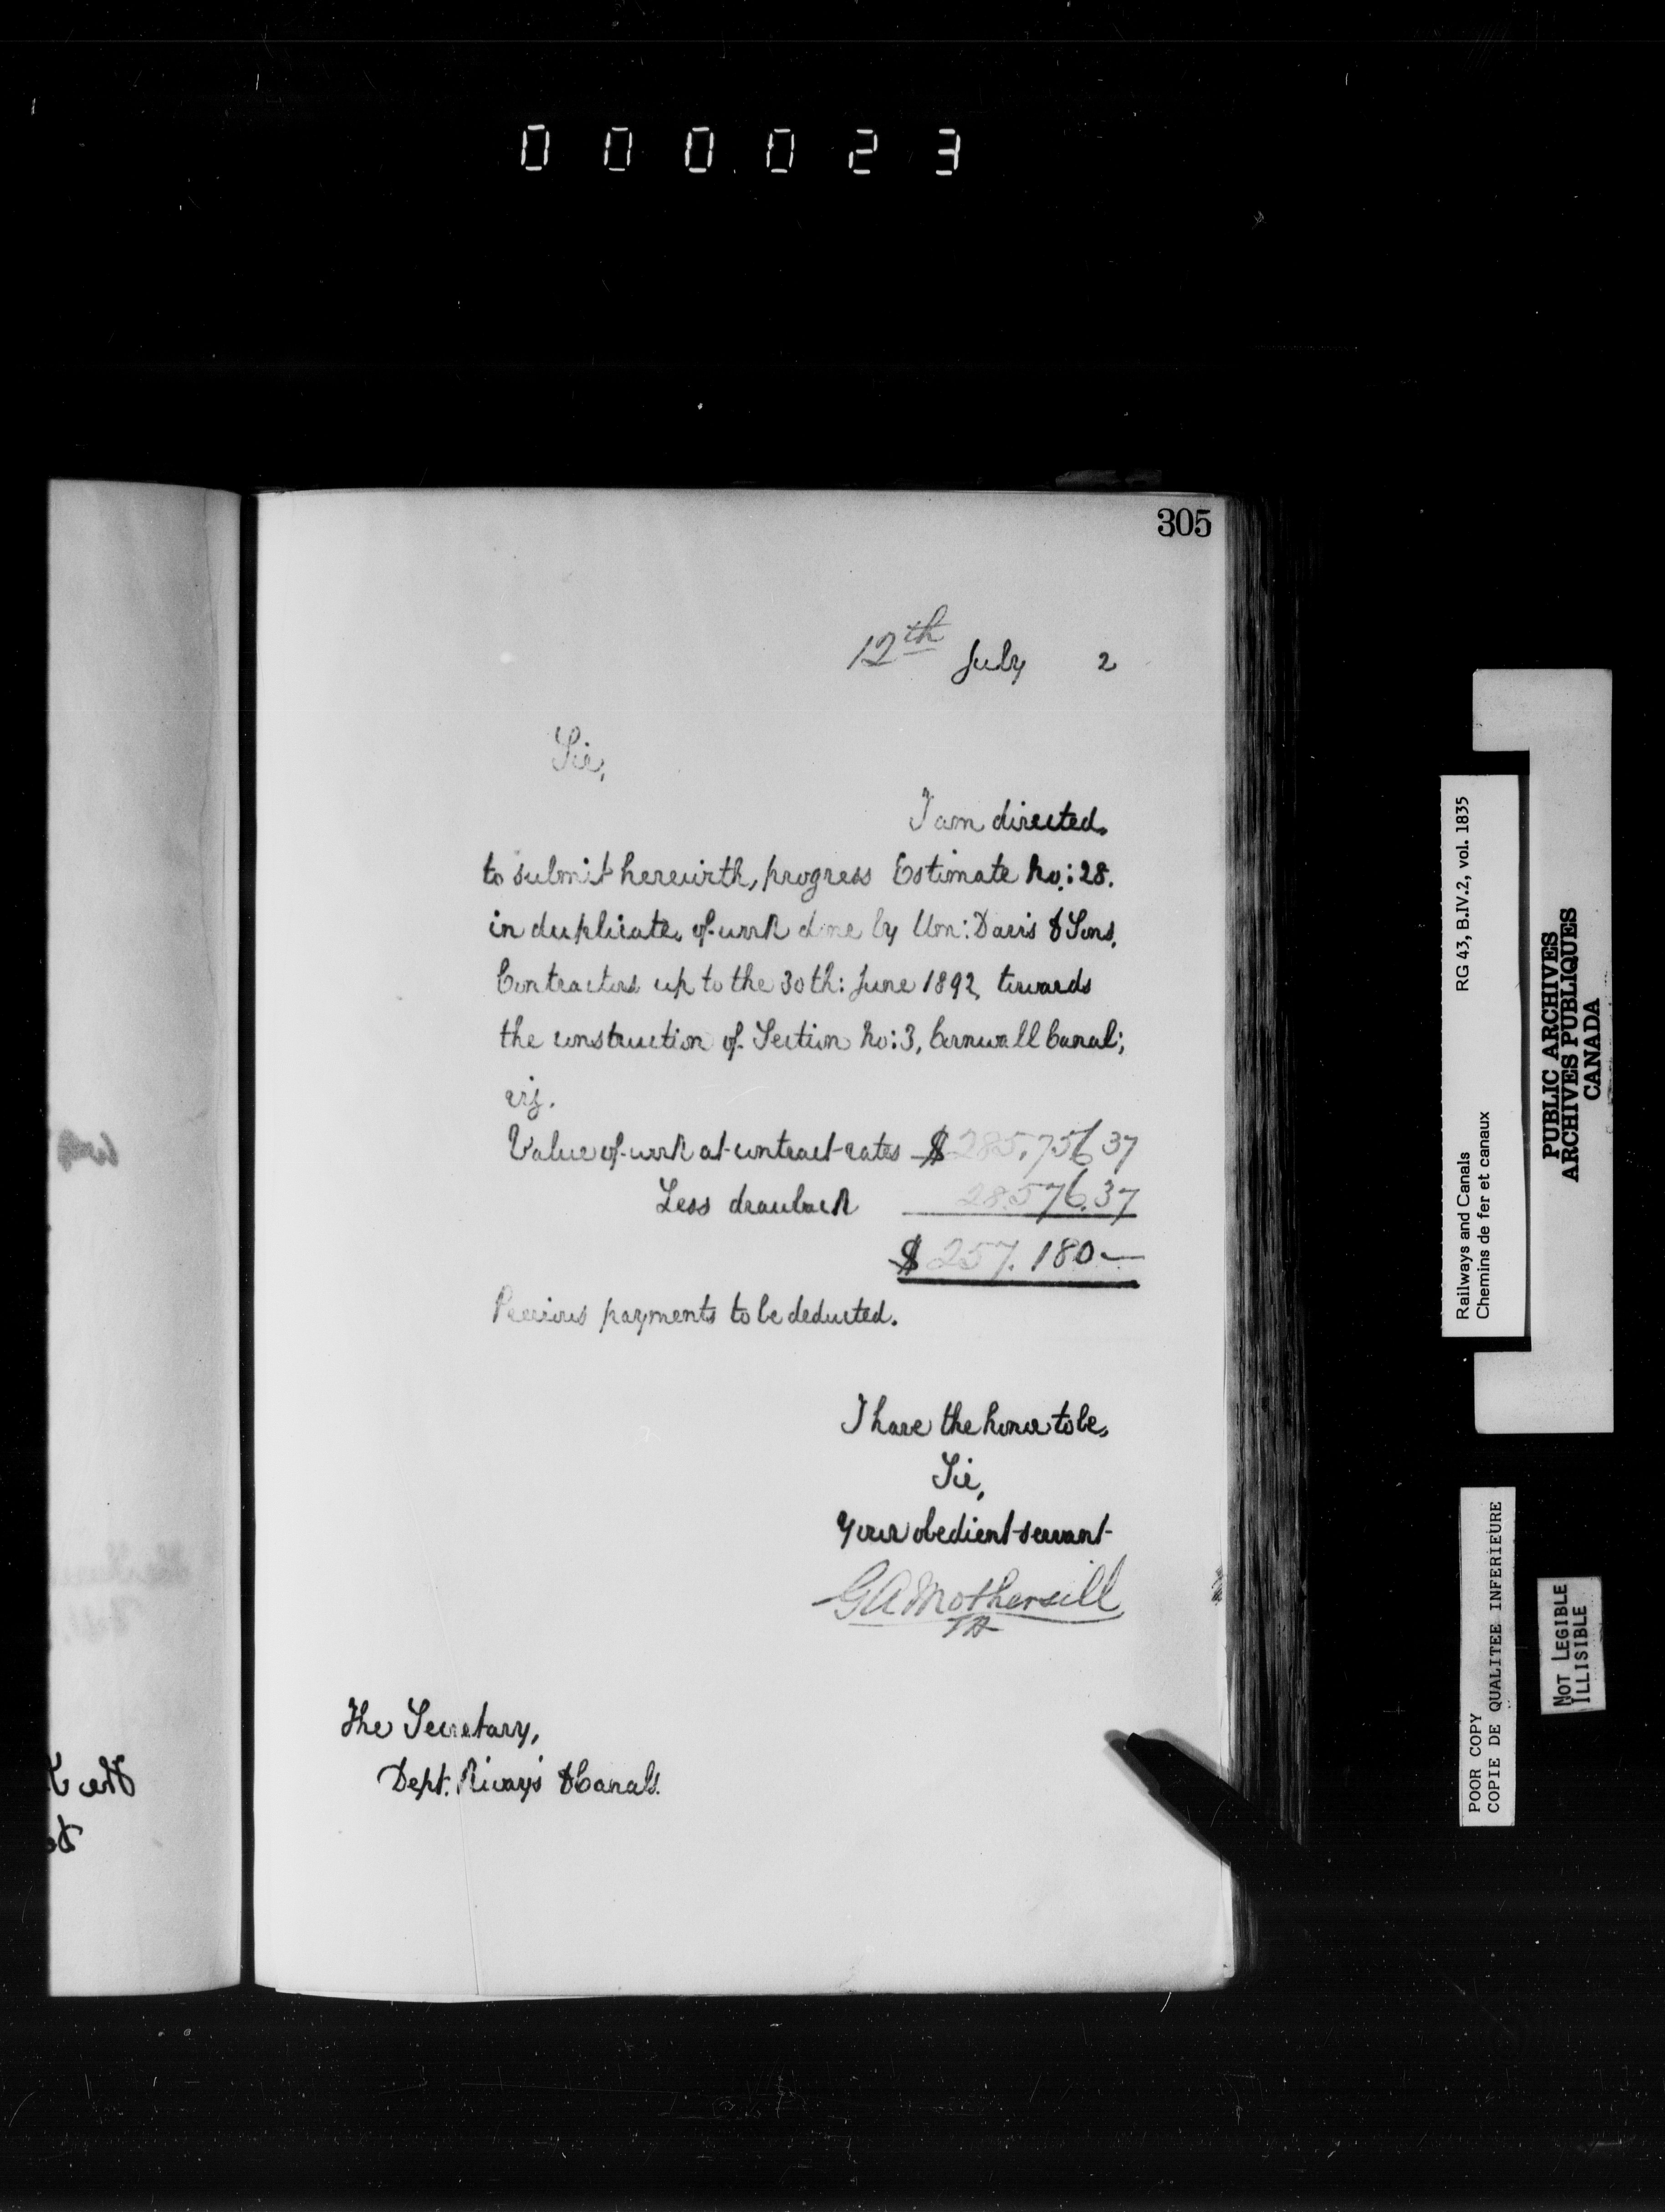 000.023
305
12th July 2
Sir,
I am directed
to submit herewith, progress Estimate No: 28.
in duplicate of work done by Wm: Davis & Sons,
Contractors up to the 30th: June 1892, towards
the construction of Section No: 3, Cornwall Canal;
viz.
Value of work at contract rates $285,756.37
Less drawback 28.576.37
$257.180—
Previous payments to be deducted.
I have the honor to be,
Sir,
Your obedient servant
GA Mothersill
The Secretary,
Dept. Rways & Canals.
Railways and Canals RG 43, B.IV.2, vol. 1835
Chemins de fer et canaux
PUBLIC ARCHIVES
ARCHIVES PUBLIQUES
CANADA
POOR COPY
COPIE DE QUALITEE INFERIEURE
NOT LEGIBLE
ILLISIBLE